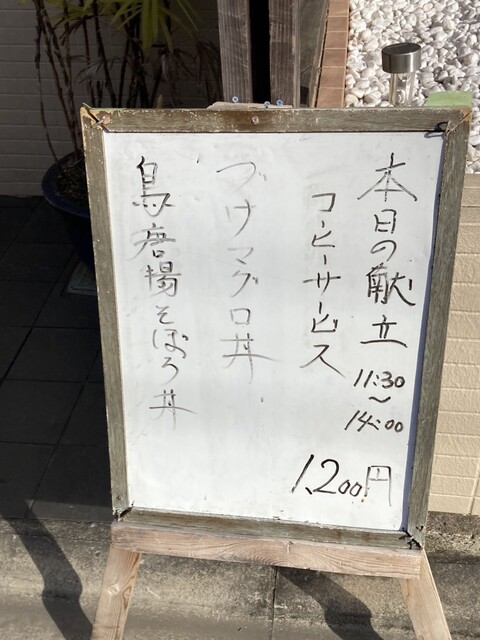 本日の献立
11:30
〜
14:00
コーヒーサービス
1,200円
づけマグロ丼
鳥唐揚そぼろ丼